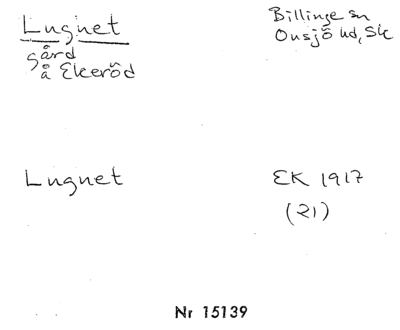 Lugnet
gård
å Ekeröd
Billinge sn
Onsjö hd, Sk
Lugnet
EK 1917
(21)
Nr 15139